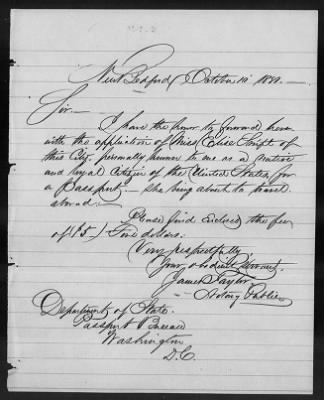 New Bedford October 10" 18
Sir.
I have the honor to forward here
with the application of Miss Elise of
this City, personally known to me as a native
and loyal Citizen of the United States, for
a Passport. She being about to travel
abroad.
Please find Enclosed the fee
of ($5.) Five dollars.
Very respectfully
Your obedient Servant.
James Taylor
Notary Public
Department of State.
Passport Bureau
Washington
D.C.